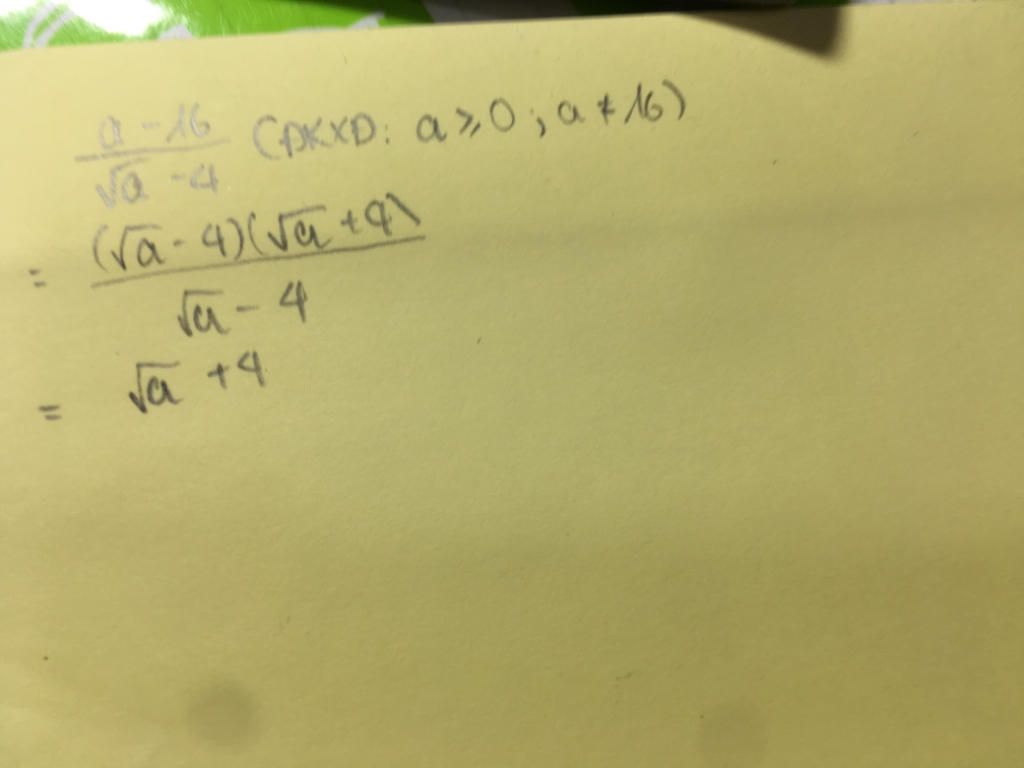 a - 16 / √a - 4 (ĐKXĐ: a ≥ 0 ; a ≠ 16)
= (√a - 4)(√a + 4) / √a - 4
= √a + 4